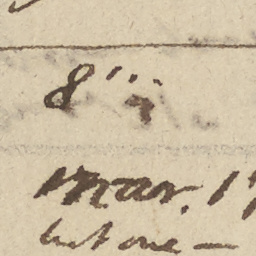 8
Mar. 17
but one —